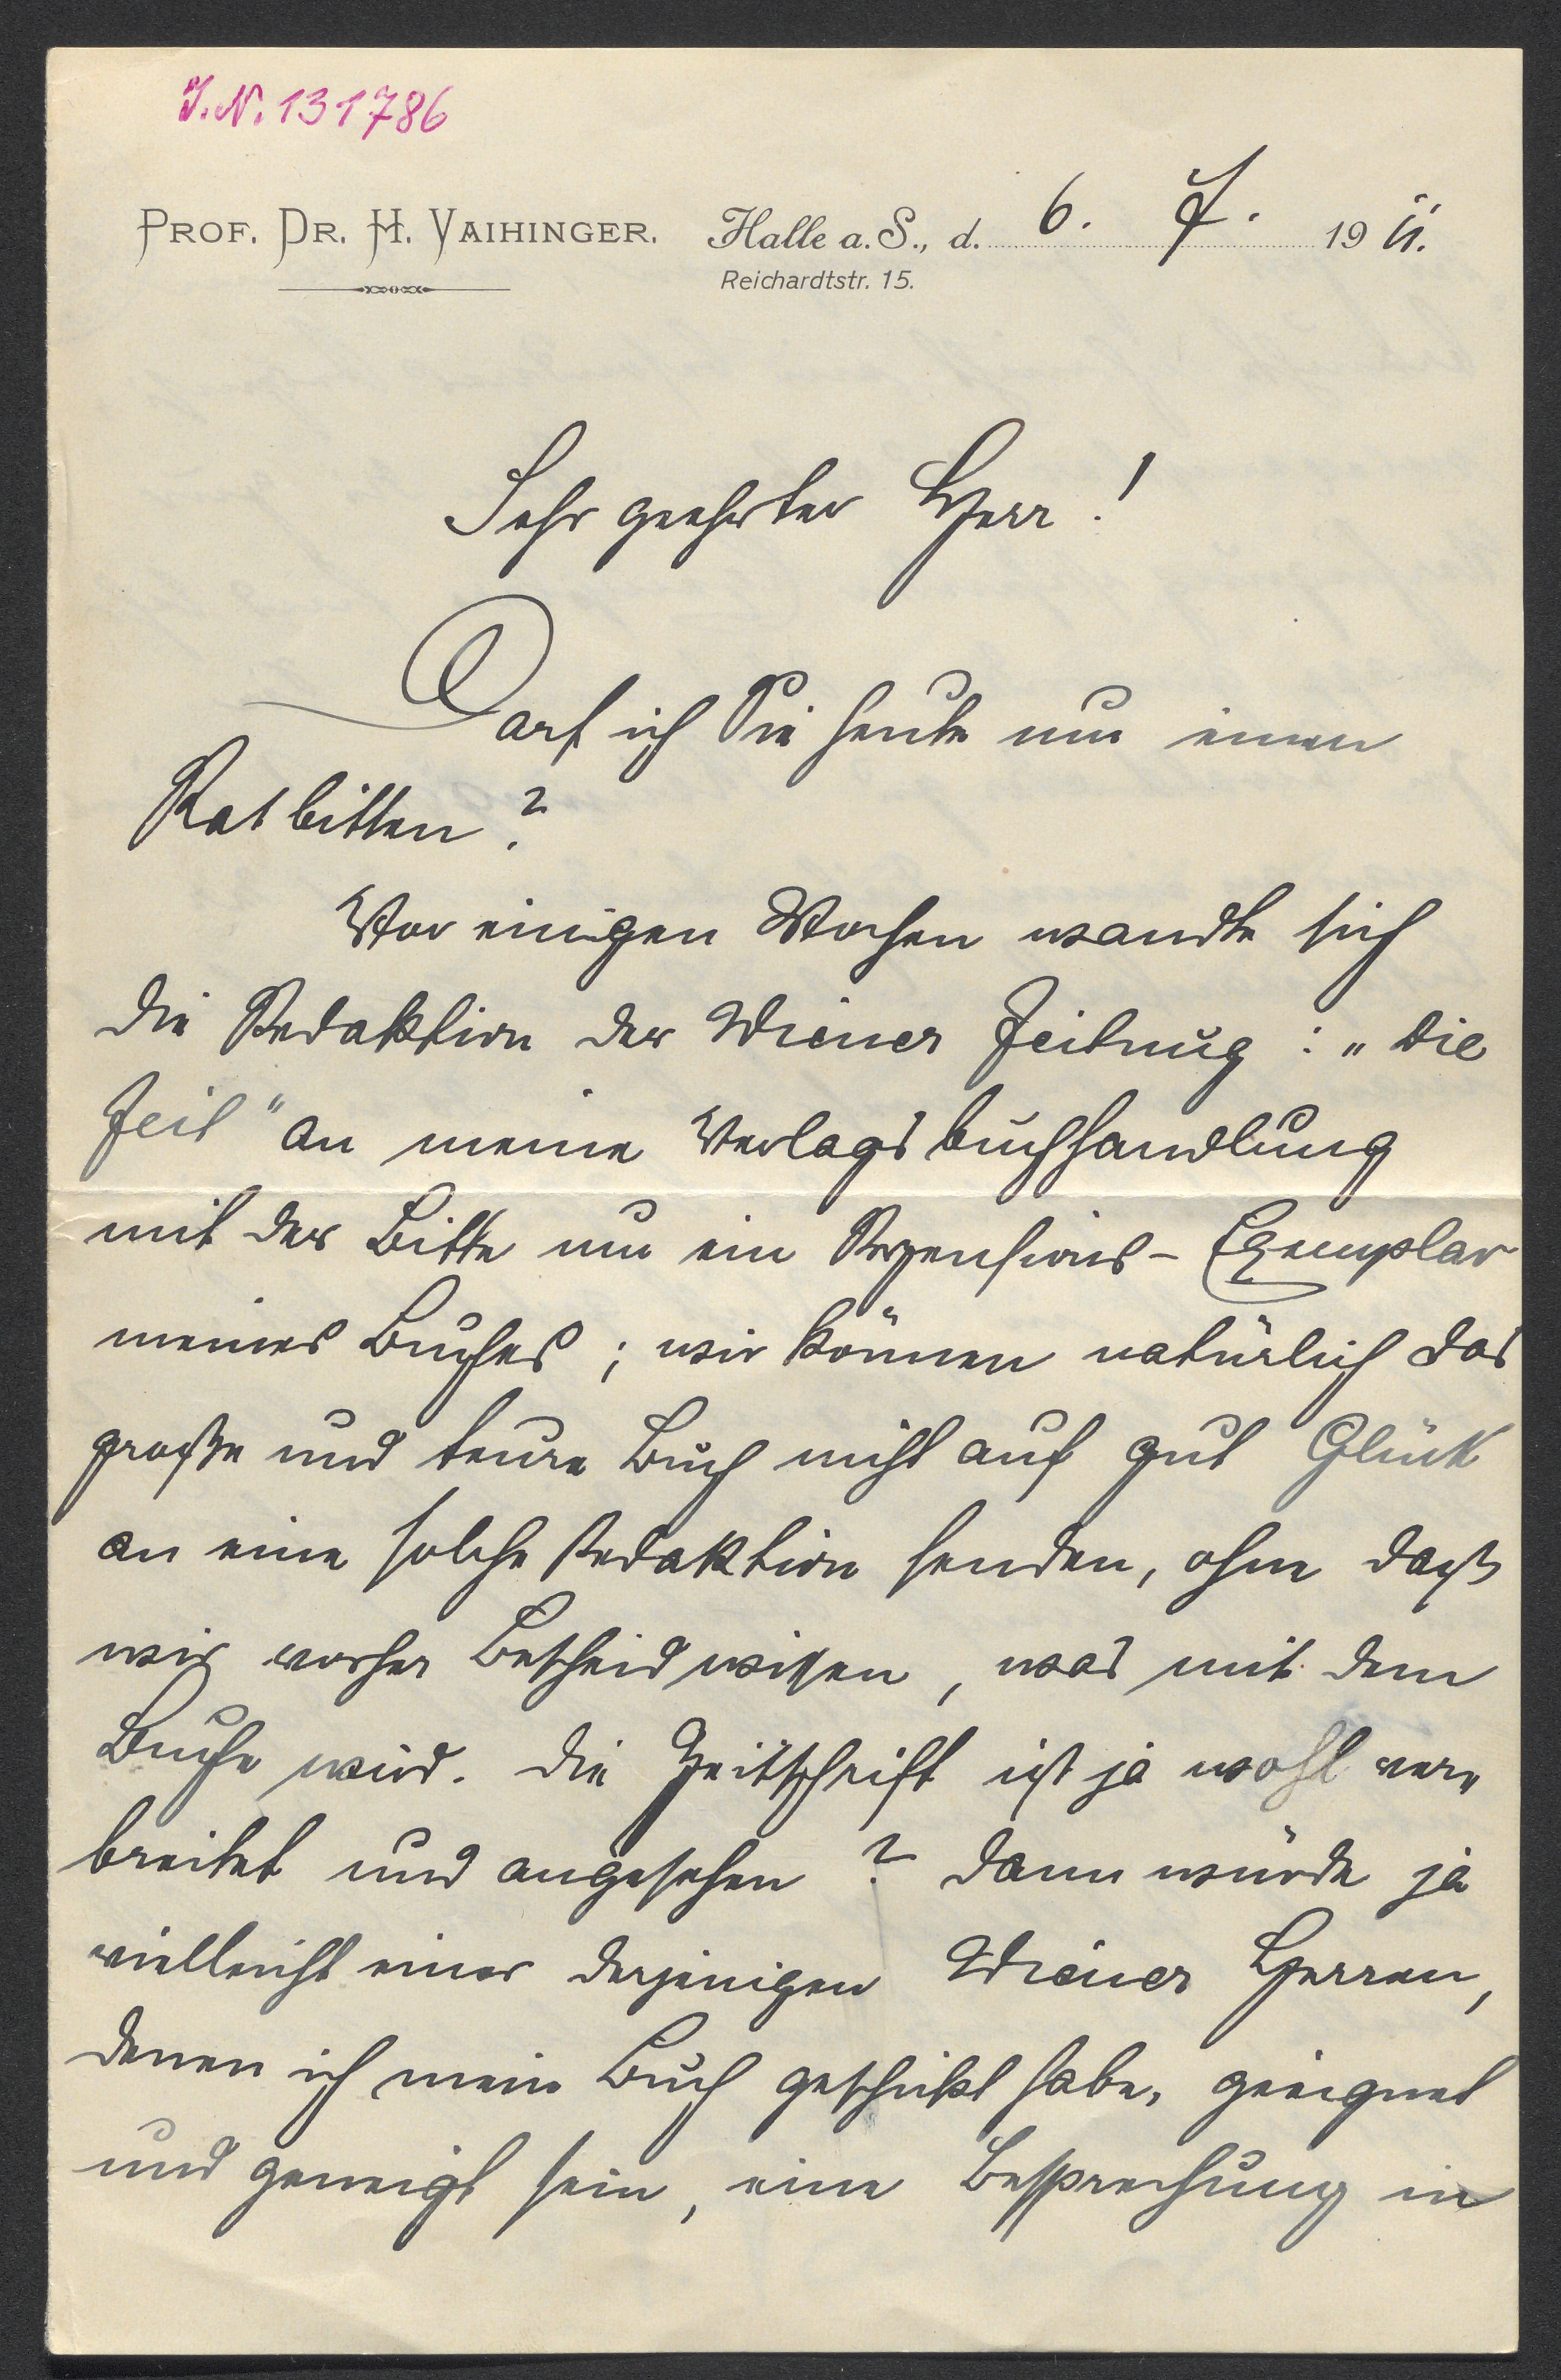 J.N. 131786
PROF. DR. H. VAIHINGER. Halle a. S., d. 6. 7. 1911.
Reichardtstr. 15.
Sehr geehrter Herr!
Darf ich Sie heute um einen
Rat bitten?
Vor einigen Wochen wandte sich
die Redaktion der Wiener Zeitung: „Die
Zeit" an meine Verlagsbuchhandlung
mit der Bitte um ein Rezensions-Exemplar
meines Buches; wir können natürlich das
große und teure Buch nicht auf gut Glück
an eine solche Redaktion senden, ohne daß
wir vorher Bescheid wissen, was mit dem
Buche wird. Die Zeitschrift ist ja wohl ver„
breitet und angesehen? Dann würde ja
vielleicht einer derjenigen Wiener Herren,
denen ich mein Buch geschickt habe, geeignet
und geneigt sein, eine Besprechung in